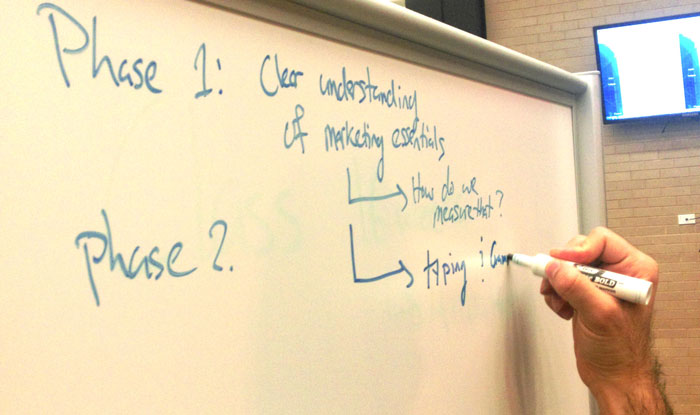 Phase 1: Clear understanding
of marketing essentials
How do we
measure that?
phase 2.
typing
BOLD